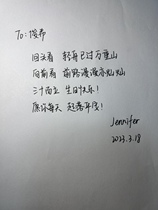 To:
回头看 轻舟已过万重山
向前看 前路漫漫亦灿灿
三十而立 生日快乐!
愿你每天
Jennifer
2023.3.18